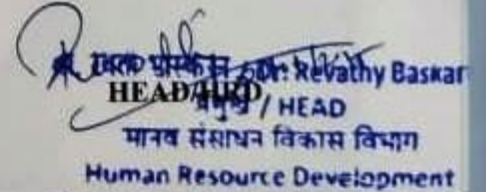 Dr. Revathy Baskar
HEAD/HRD
/ HEAD
मानव संसाधन विकास विभाग
Human Resource Development